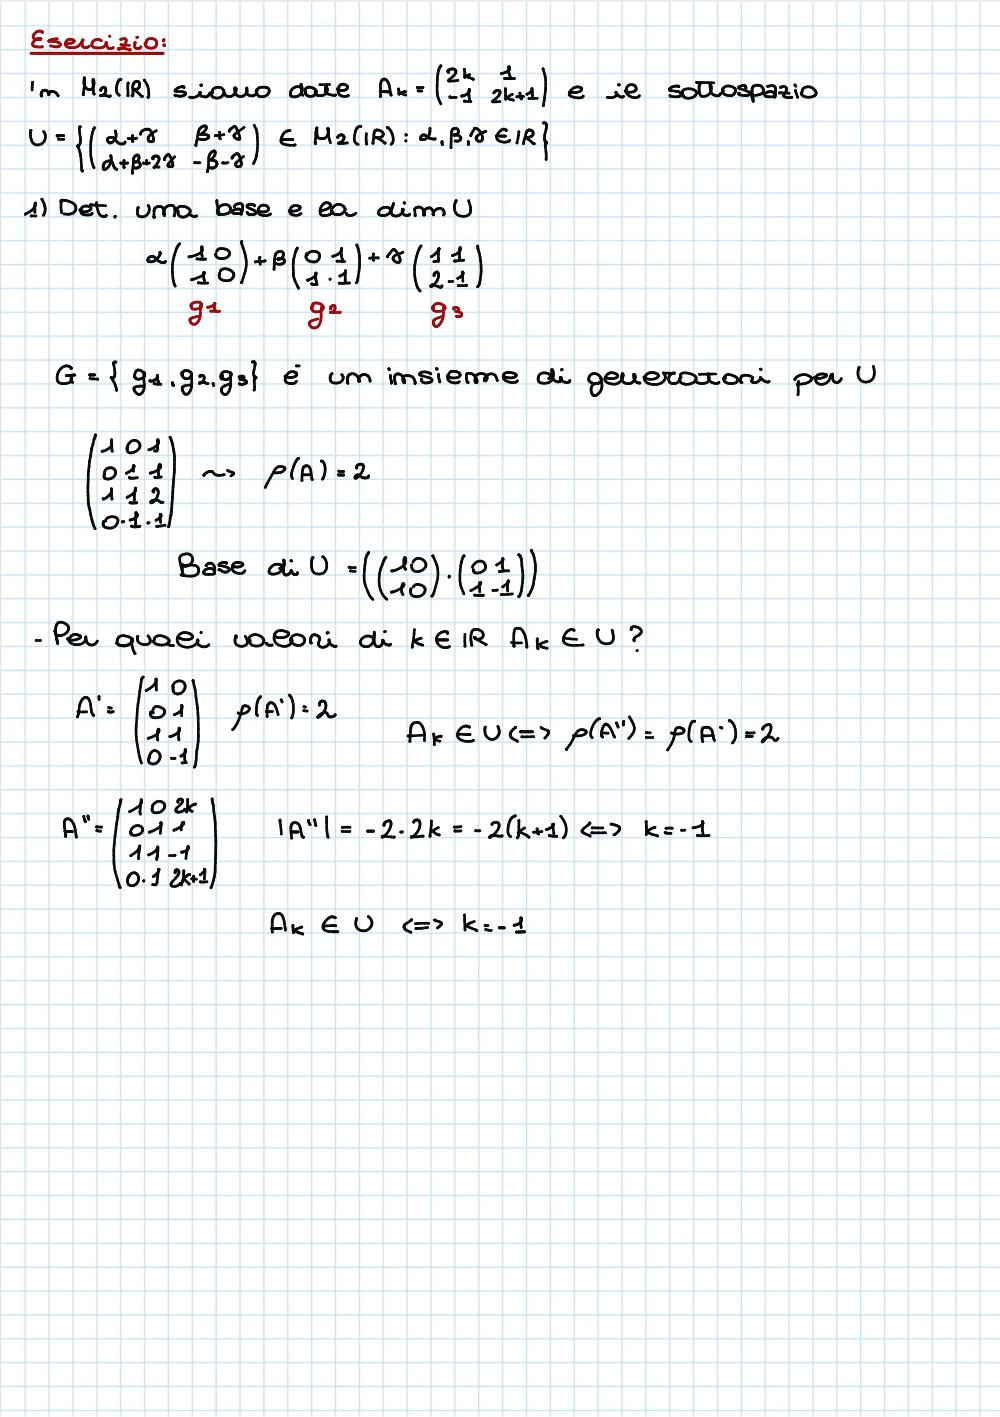 Esercizio:
In M2(IR) siano date Ak = (2k 1 / -1 2k+1) e il sottospazio
U = {(α+γ β+γ / α+β+2γ -β-γ) ∈ M2(IR): α,β,γ ∈ IR}
1) Det. una base e la dim U
α(1 0 / 1 0) + β(0 1 / 1 -1) + γ(1 1 / 2 -1)
g1 g2 g3
G = { g1, g2, g3} è un insieme di generatori per U
(1 0 1 / 0 1 1 / 1 1 2 / 0 -1 -1) ~> ρ(A) = 2
Base di U = ((1 0 / 1 0), (0 1 / 1 -1))
- Per quali valori di k ∈ IR Ak ∈ U ?
A' = (1 0 / 0 1 / 1 1 / 0 -1) ρ(A') = 2
Ak ∈ U <=> ρ(A'') = ρ(A') = 2
A'' = (1 0 2k / 0 1 1 / 1 1 -1 / 0 -1 2k+1) |A''| = -2-2k = -2(k+1) <=> k = -1
Ak ∈ U <=> k = -1